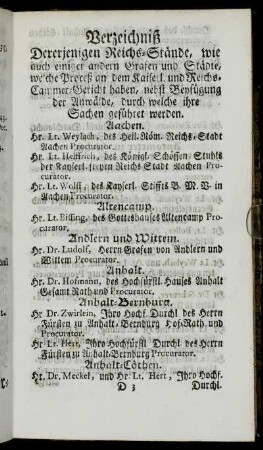 Verzeichniß
Dererjenigen Reichs-Stände, wie
auch einiger andern Grafen und Städte,
welche Proceß an dem Kaiserl. und Reichs-
Cammer-Gericht haben, nebst Beyfügung
der Anwälde, durch welche ihre
Sachen geführet werden.
Aachen.
Hr. Lt. Weylach, des Heil. Röm. Reichs-Stadt
Aachen Procurator.
Hr. Lt. Helffrich, des Königl. Schöffen-Stuhls
der Kayserl. freyen Reichs Stadt Aachen Pro-
curator.
Hr. Lt. Wolff, des Kayserl. Stiffts B. M. V. in
Aachen Procurator.
Altencamp.
Hr. Lt. Bissing, des Gotteshauses Altencamp Pro-
curator.
Andlern und Wittem.
Hr. Dr. Ludolf, Herrn Grafen von Andlern und
Wittem Procurator.
Anhalt.
Hr. Dr. Hofmann, des Hochfürstl. Hauses Anhalt
Gesamt Rath und Procurator.
Anhalt-Bernburg.
Hr Dr. Zwirlein, Ihro Hochf. Durchl. des Herrn
Fürsten zu Anhalt-Bernburg Hof-Rath und
Procurator.
Hr Lt. Hert, Ihro Hochfürstl Durchl des Herrn
Fürsten zu Anhalt-Bernburg Procurator.
Anhalt-Cöthen.
Hr. Dr. Meckel, und Hr Lt. Hert, Ihro Hochf.
D 3 Durchl.